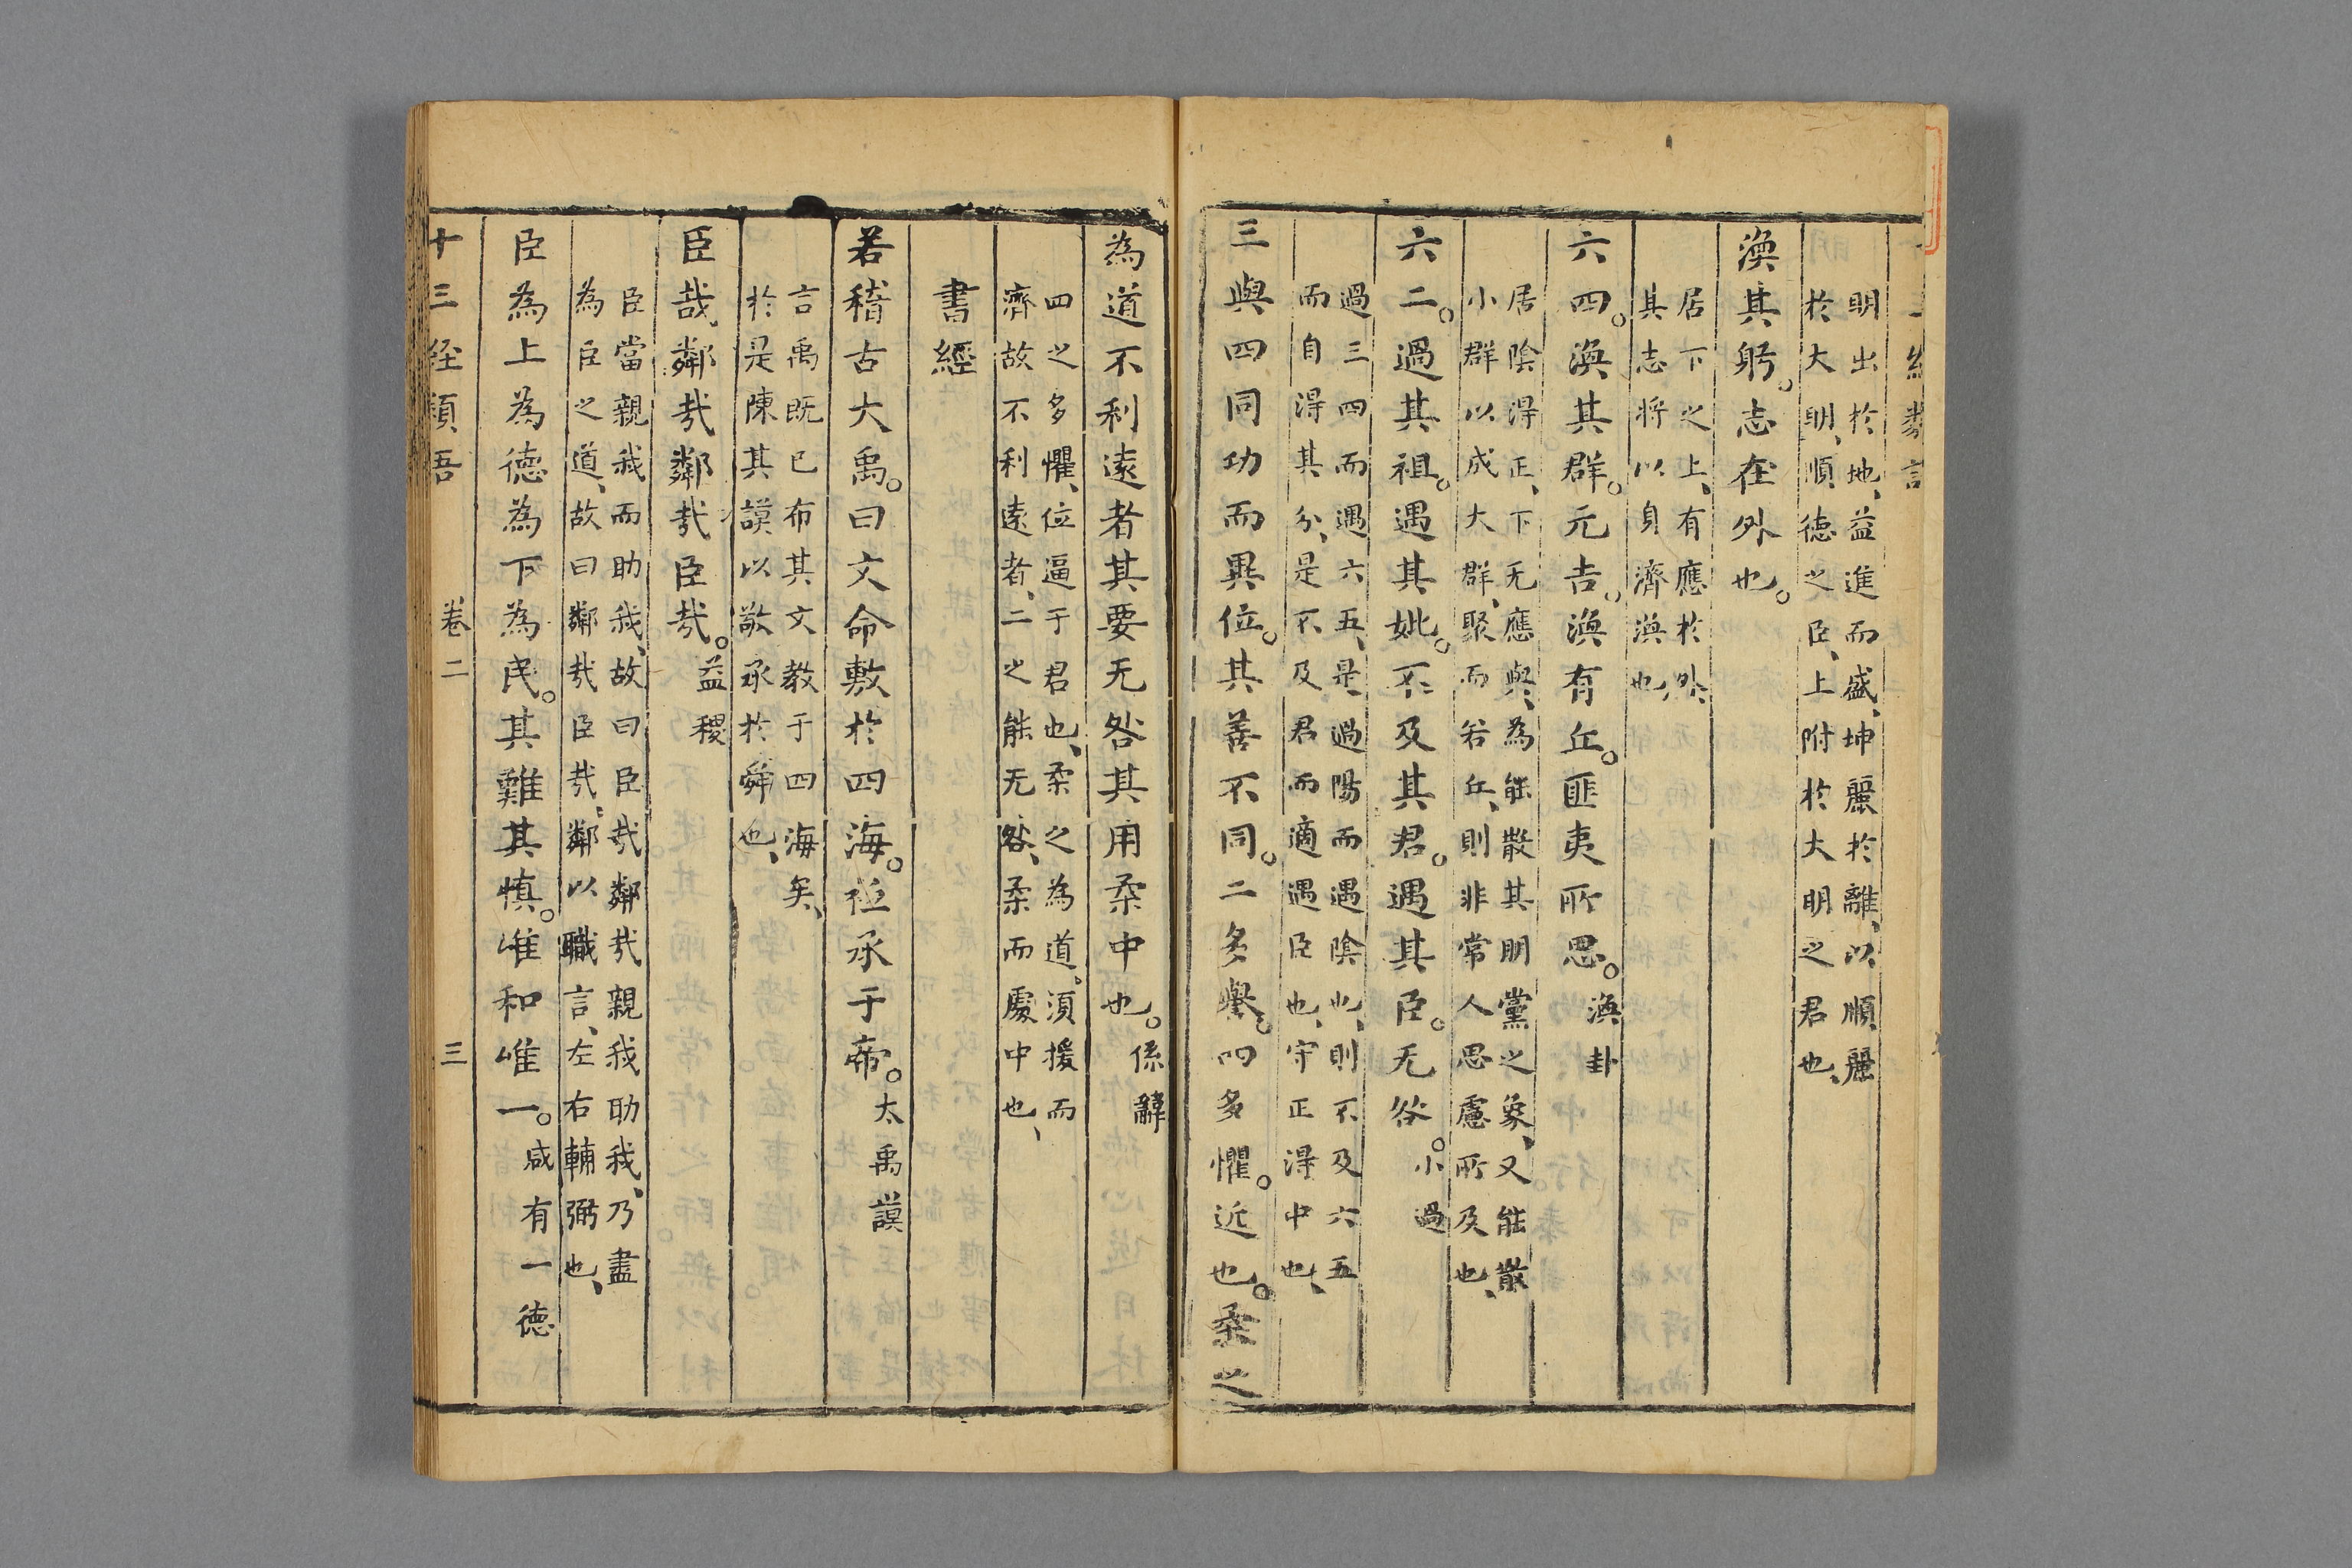 明出於地、益進而盛、坤麗於離、以順麗
於大明、順德之臣、上附於大明之君也、
渙其躬。志在外也。
居下之上、有應於外、
其志將以身濟渙也、
六四。渙其群。元吉。渙有丘。匪夷所思。渙卦
居陰得正、下无應與、為能散其朋黨之象、又能散
小群以成大群、聚而若丘、則非常人思慮所及也、
六二。過其祖。遇其妣。不及其君。遇其臣。无咎。小過
過三四而遇六五、是過陽而遇陰也、則不及六五
而自得其分、是不及君而適遇臣也、守正得中也、
三與四同功而異位。其善不同。二多譽。四多懼。近也。柔之
為道不利遠者其要无咎其用柔中也。係辭
四之多懼、位逼于君也、柔之為道。須援而
濟故不利遠者、二之能无咎、柔而處中也、
書經
若稽古大禹。曰文命敷於四海。祗承于帝。大禹謨
言禹既已布其文教于四海矣、
於是陳其謨以敬承於舜也、
臣哉、鄰哉鄰哉臣哉。益稷
臣當親我而助我、故曰臣哉鄰哉親我助我、乃盡
為臣之道、故曰鄰哉臣哉、鄰以職言、左右輔弼也、
臣為上為德為下為民。其難其慎。惟和惟一。咸有一德
十三経類吾 卷二 三